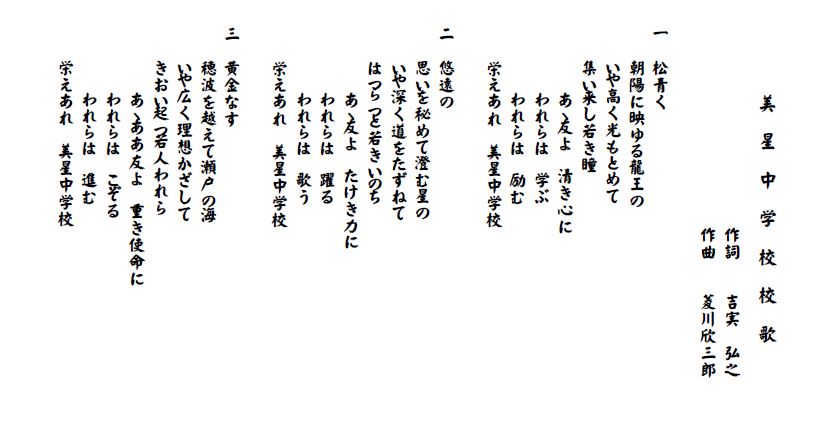 美星中学校校歌
作詞　吉実　弘之
作曲　菱川欣三郎
一
松青く
朝陽に映ゆる龍王の
いや高く光もとめて
集い来し若き瞳
あゝ友よ　清き心に
われらは　学ぶ
われらは　励む
栄えあれ　美星中学校
二
悠遠の
思いを秘めて澄む星の
いや深く道をたずねて
はつらつと若きいのち
あゝ友よ　たけき力に
われらは　躍る
われらは　歌う
栄えあれ　美星中学校
三
黄金なす
穂波を越えて瀬戸の海
いや広く理想かざして
きおい起つ若人われら
あゝああ友よ　重き使命に
われらは　こぞる
われらは　進む
栄えあれ　美星中学校